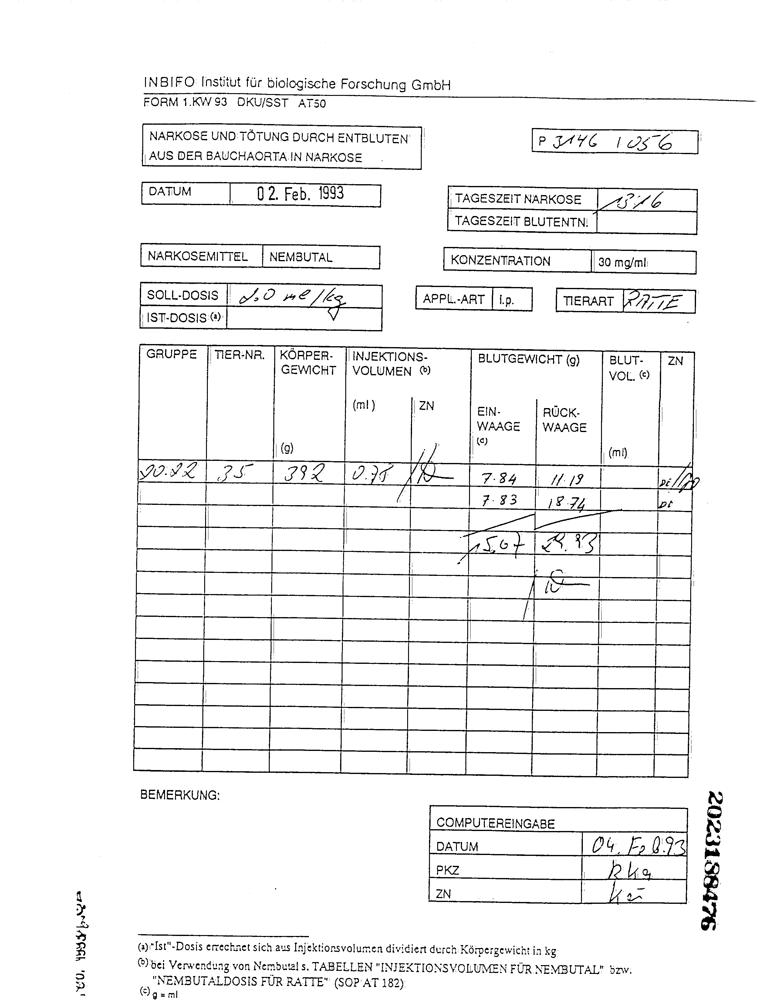 INBIFO Institut für biologische Forschung GmbH
FORM 1.KW 93 DKU/SST AT50
NARKOSE UND TÖTUNG DURCH ENTBLUTEN
AUS DER BAUCHAORTA IN NARKOSE
P 3146 1056
DATUM 02. Feb. 1993
TAGESZEIT NARKOSE 1316
TAGESZEIT BLUTENTN.
NARKOSEMITTEL NEMBUTAL
KONZENTRATION 30 mg/ml
SOLL-DOSIS 2.0 ml/kg
IST-DOSIS (a)
APPL.-ART I.p.
TIERART RATTE
GRUPPE TIER-NR. KÖRPER- INJEKTIONS- BLUTGEWICHT (g) BLUT- ZN
GEWICHT VOLUMEN (b) VOL. (c)
(ml) ZN EIN- RÜCK-
WAAGE WAAGE
(g) (c) (ml)
35 392 0.75 7.84 11.19
7.83 18.74
15,67
BEMERKUNG:
COMPUTEREINGABE
DATUM 04. Feb. 93
PKZ
ZN
2023188476
(a) "Ist"-Dosis errechnet sich aus Injektionsvolumen dividiert durch Körpergewicht in kg
(b) bei Verwendung von Nembutal s. TABELLEN "INJEKTIONSVOLUMEN FÜR NEMBUTAL" bzw.
"NEMBUTALDOSIS FÜR RATTE" (SOP AT 182)
(c) g = ml